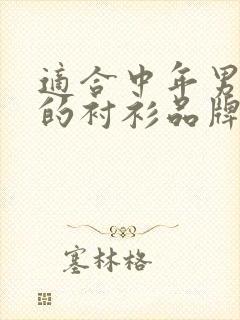 適合中年男
的衬衫品牌
塞林格